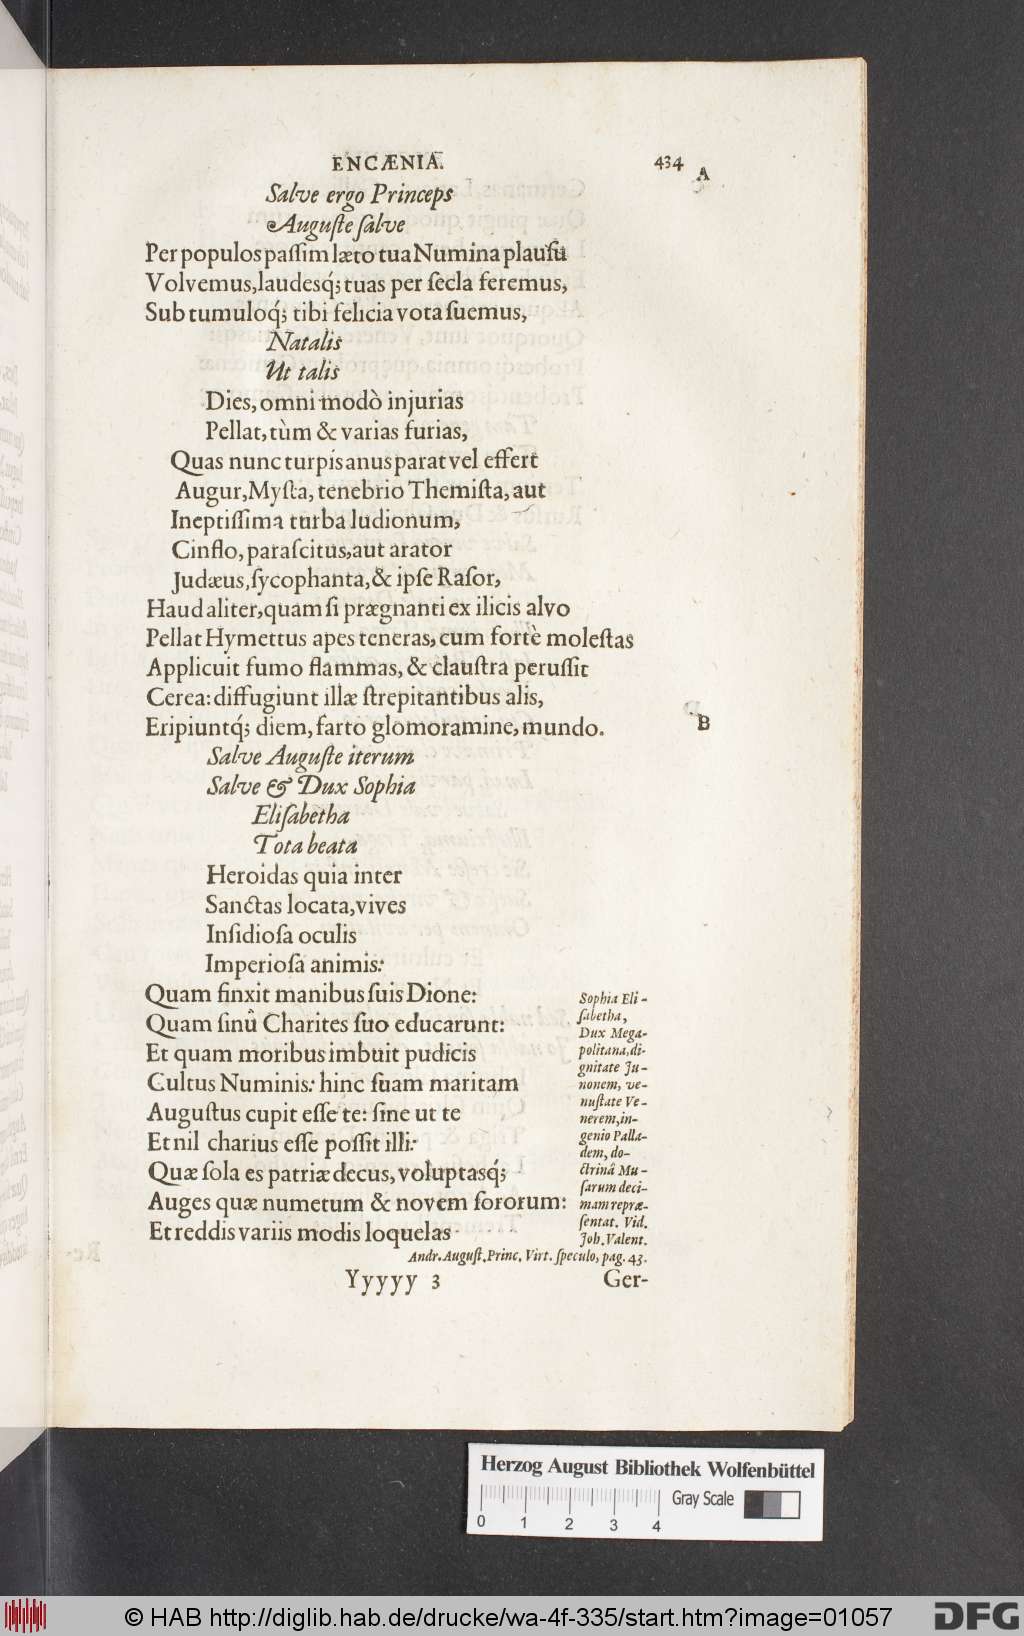 ENCÆNIA. 434
A
Salve ergo Princeps
Auguſte ſalve
Per populos paſſim læto tua Numina plauſu
Volvemus, laudesq́; tuas per ſecla feremus,
Sub tumuloq́; tibi felicia vota ſuemus,
Natalis
Ut talis
Dies, omni modò injurias
Pellat, tùm & varias furias,
Quas nunc turpis anus parat vel effert
Augur, Myſta, tenebrio Themiſta, aut
Ineptiſſima turba ludionum,
Cinflo, paraſcitus, aut arator
Judæus, ſycophanta, & ipſe Raſor,
Haud aliter, quam ſi prægnanti ex ilicis alvo
Pellat Hymettus apes teneras, cum fortè moleſtas
Applicuit fumo flammas, & clauſtra peruſſit
Cerea: diffugiunt illæ ſtrepitantibus alis,
Eripiuntq́; diem, farto glomoramine, mundo.
B
Salve Auguſte iterum
Salve & Dux Sophia
Eliſabetha
Tota beata
Heroidas quia inter
Sanctas locata, vives
Inſidioſa oculis
Imperioſa animis:
Quam finxit manibus ſuis Dione:
Quam ſinu Charites ſuo educarunt:
Et quam moribus imbuit pudicis
Cultus Numinis: hinc ſuam maritam
Auguſtus cupit eſſe te: ſine ut te
Et nil charius eſſe poſſit illi:
Quæ ſola es patriæ decus, voluptasq́;
Auges quæ numerum & novem ſororum:
Et reddis variis modis loquelas
Sophia Eli-
ſabetha,
Dux Mega-
politana, di-
gnitate Ju-
nonem, ve-
nuſtate Ve-
nerem, in-
genio Palla-
dem, do-
ctrinâ Mu-
ſarum deci-
mam repræ-
ſentat. Vid.
Joh. Valent.
Andr. Auguſt. Princ. Virt. ſpeculo, pag. 43.
Yyyyy 3 Ger-
Herzog August Bibliothek Wolfenbüttel
Gray Scale
0 1 2 3 4
© HAB http://diglib.hab.de/drucke/wa-4f-335/start.htm?image=01057
DFG